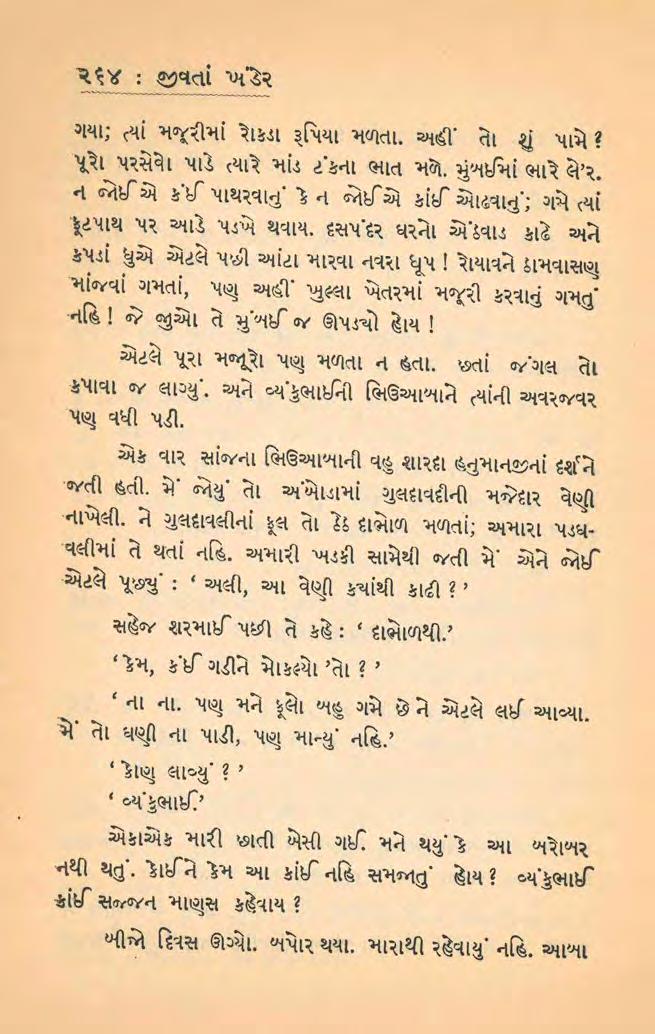 ૨૬૪ : જીવતાં ખંડેર
ગયા; ત્યાં મજૂરીમાં રોકડા રૂપિયા મળતા. અહીં તો શું પામે ?
પૂરો પરસેવો પાડે ત્યારે માંડ ટંકના ભાત મળે. મુંબઈમાં ભારે લે'ર.
ન જોઈએ કંઈ પાથરવાનું કે ન જોઈએ કાંઈ ઓઢવાનું; ગમે ત્યાં
ફૂટપાથ પર આડે પડખે થવાય. દસપંદર ઘરનો એંઠવાડ કાઢે અને
કપડાં ધુએ એટલે પછી આંટા મારવા નવરા ધૂપ ! રોયાવને ઠામવાસણ
માંજવાં ગમતાં, પણ અહીં ખુલ્લા ખેતરમાં મજૂરી કરવાનું ગમતું
નહિ ! જે જીુઓ તે મુંબઈ જ ઊપડચો હોય !
એટલે પૂરા મજૂરો પણ મળતા ન હતા. છતાં જંગલ તો
કપાવા જ લાગ્યું. અને વ્યંકુભાઈની ભિઉઆબાને ત્યાંની અવરજવર
પણ વધી પડી.
એક વાર સાંજના ભિઉઆબાની વહુ શારદા હનુમાનજીનાં દર્શને
જતી હતી. મેં જોયું તો અંબોડામાં ગુલદાવદીની મજેદાર વેણી
નાખેલી. ને ગુલદાવલીનાં ફૂલ તો ઠેઠ દાભોળ મળતાં; અમારા પડઘ-
વલીમાં તે થતાં નહિ. અમારી ખડકી સામેથી જતી મેં એને જોઈ
એટલે પૂછ્યું : ‘ અલી, આ વેણી કયાંથી કાઢી ? ’
સહેજ શરમાઈ પછી તે કહે : ‘ દાભોળથી.’
‘ કેમ, કંઈ ગડીને મોકલ્યો ’તો ? ’
‘ ના ના. પણ મને ફૂલો બહુ ગમે છે ને એટલે લઈ આવ્યા.
મેં તો ઘણી ના પાડી, પણ માન્યું નહિ.’
‘ કોણ લાવ્યું ? ’
‘ વ્યંકુભાઈ.’
એકાએક મારી છાતી બેસી ગઈ. મને થયું કે આ બરોબર
નથી થતું. કોઈને કેમ આ કાંઈ નહિ સમજાતું હોય ? વ્યંકુભાઈ
કાંઈ સજ્જન માણસ કહેવાય ?
બીજો દિવસ ઊગ્યો. બપોર થયા. મારાથી રહેવાયું નહિ. આબા